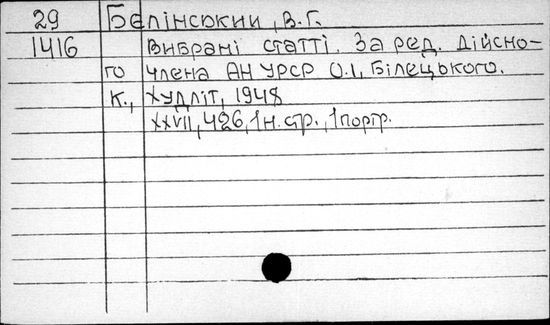 29 Бєлінський, В.Г.
1416 Вибрані статті. За ред. дійсно-
го члена АН УРСР О.І, Білецького.
К., Худліт, 1948
XXVII, 426, 1 н. стр., 1 портр.